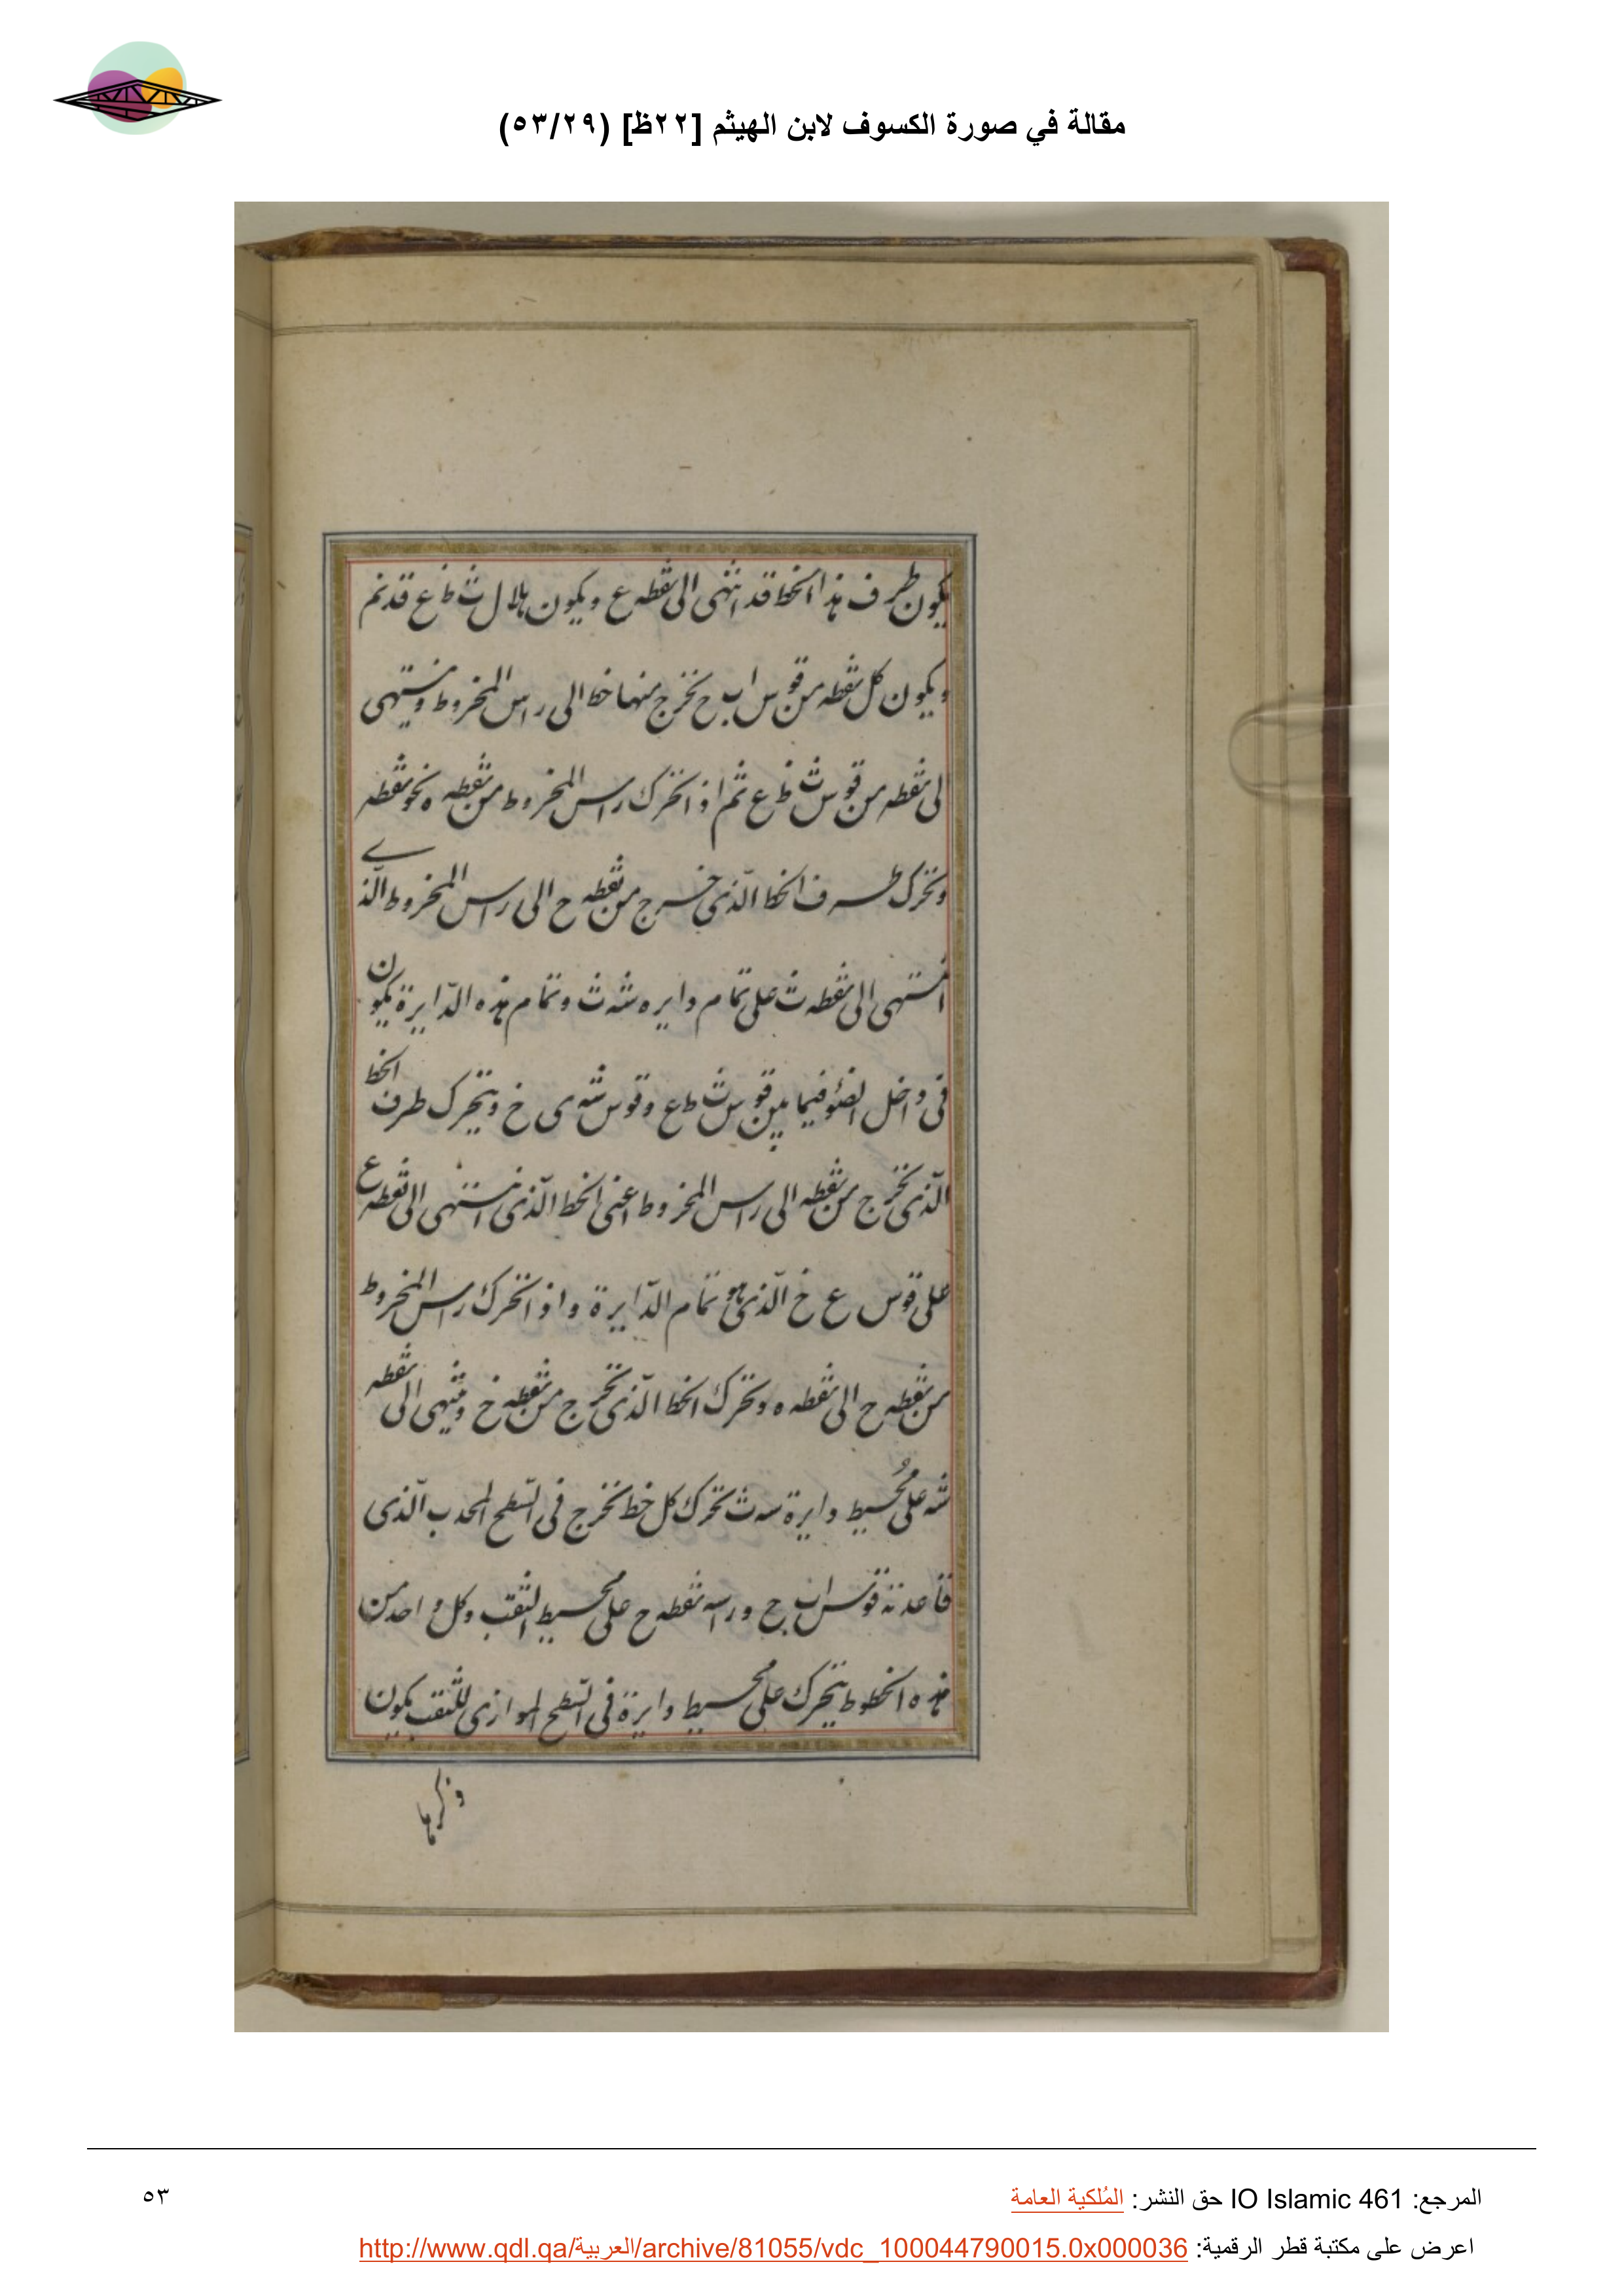 مقالة في صورة الكسوف لابن الهيثم [٢٢ظ] (٥٣/٢٩)
يكون طرف هذا الخط قد انتهى الى نقطه ع ويكون هلال ث ظ ع قد تم
ويكون كل نقطه من قوس ا ب ح تخرج منها خط الى راس المخروط وينتهى
الى نقطه من قوس ث ظ ع ثم اذا تحرك راس المخروط من نقطه ه نحو نقطه
وتحرك طرف الخط الذى خرج من نقطه ح الى راس المخروط الذى
انتهى الى نقطه ث على تمام دايره شه ث وتمام هذه الدايرة يكون
فى داخل الضوء فيما بين قوس ث ط ع وقوس شه ى خ ويتحرك طرف الخط
الذى تخرج من نقطه الى راس المخروط اعنى الخط الذى انتهى الى نقطه ع
على قوس ع خ الذى هو تمام الدايرة واذا تحرك راس المخروط
من نقطه ح الى نقطه ه وتحرك الخط الذى تخرج من نقطه خ وينتهى الى نقطه
شه على مُحيط دايرة سه ث تحرك كل خط تخرج فى السطح المحدب الذى
قاعدته قوس ا ب ج وراسه نقطه ح على محيط الثقب وكل واحد من
هذه الخطوط يتحرك على محيط دايرة فى السطح الموازى للثقب يكون
ذكرها
المرجع: IO Islamic 461 حق النشر: المُلكية العامة
٥٣
اعرض على مكتبة قطر الرقمية: http://www.qdl.qa/العربية/archive/81055/vdc_100044790015.0x000036